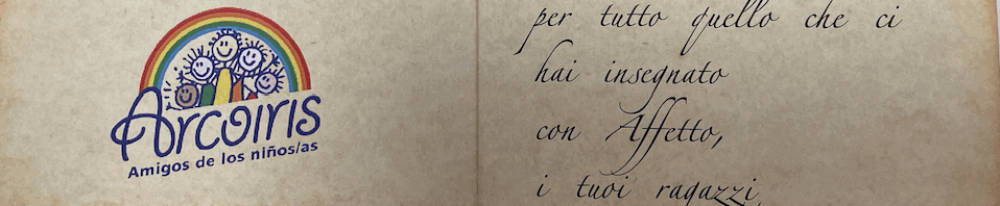 Arcoiris
Amigos de los niños/as
per tutto quello che ci
hai insegnato
con Affetto,
i tuoi ragazzi